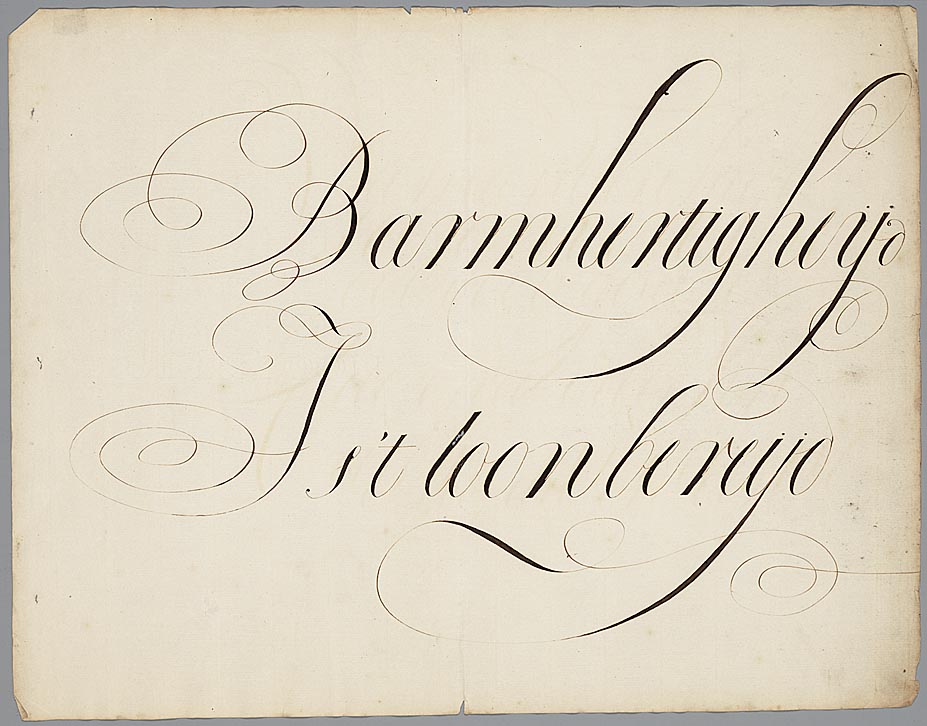 Barmhertigheijd
Is't loon bereijd